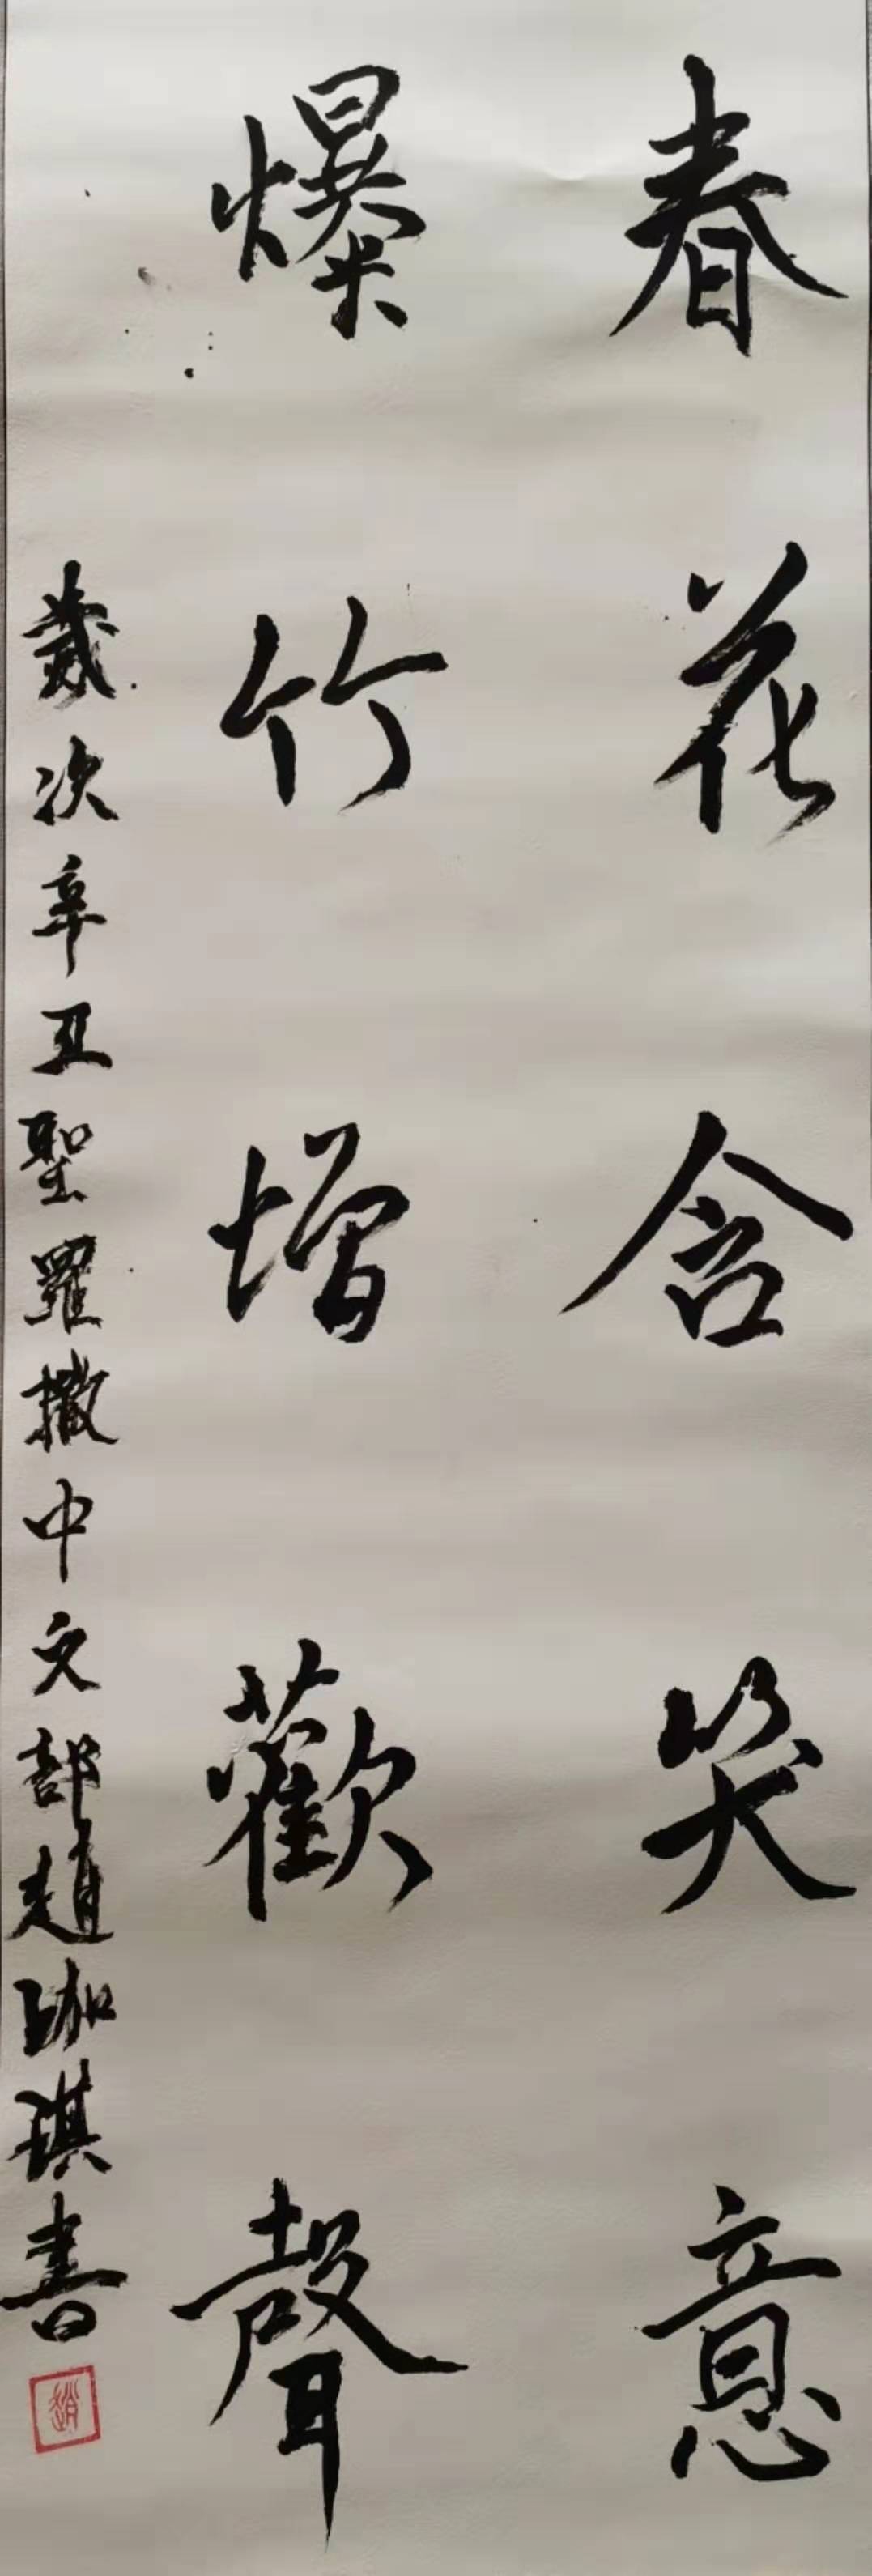 春花含笑意
爆竹增歡聲
歲次辛丑聖羅撒中文部趙珈琪書
趙